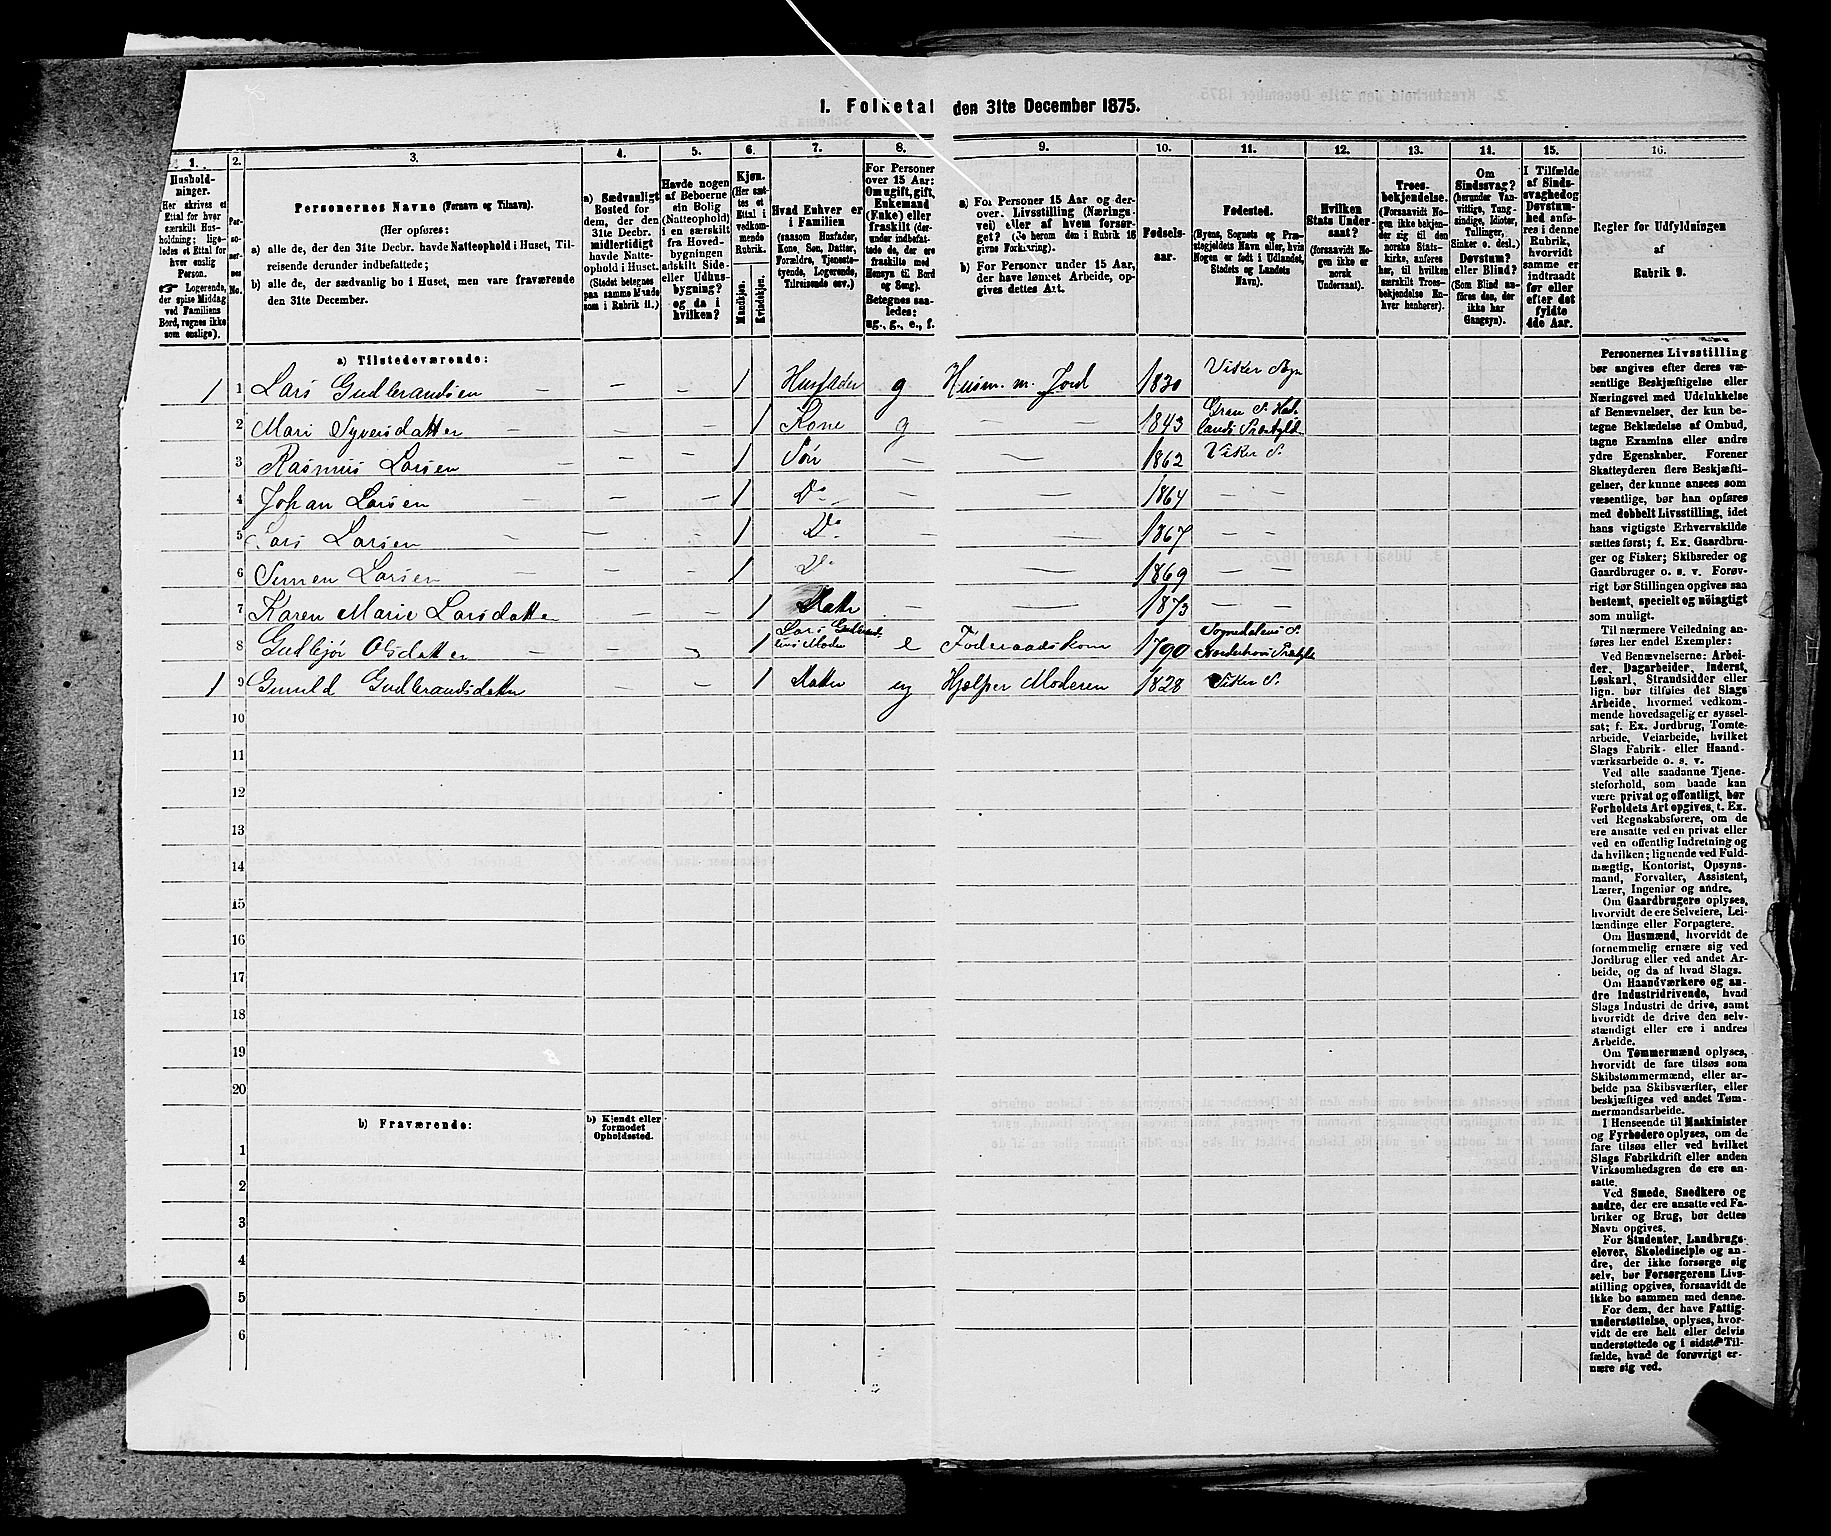 1. Folketal den 31te December 1875.
1.
2.
3.
4.
5.
6.
7.
8.
9.
10.
11.
12.
13.
14.
15.
16.
Hushold-
ninger.
Her skrives et
Ettal for hver
særskilt Hus-
holdning; lige-
ledes et Ettal for
hver enslig
Person.
☞ Logerende,
der spise Middag
ved Familiens
Bord, regnes ikke
som enslige).
Per-
so-
ner-
nes
No.
Personernes Navne (Fornavn og Tilnavn).
(Her opføres:
a) alle de, der den 31te Decbr. havde Natteophold i Huset, Til-
reisende derunder indbefattede;
b) alle de, der sædvanlig bo i Huset, men vare fraværende
den 31te December.
a) Sædvanligt
Bosted for
dem, der den
31te Decbr.
midlertidigt
havde Natte-
ophold i Huset.
(Stedet betegnes
paa samme Maade
som i Rubrik 11.)
Havde nogen
af Beboerne
sin Bolig
(Natteophold)
i en særskilt
fra Hoved-
bygningen
adskilt Side-
eller Udhus-
bygning?
og da i
hvilken?
Kjøn.
(Her sæt-
tes et
Ettal i
vedkom-
mende
Rubrik.
Mandkjøn.
Kvindekjøn.
Hvad Enhver er
i Familien
(saasom Husfader,
Kone, Søn, Datter,
Forældre, Tjeneste-
tyende, Logerende,
Tilreisende osv.)
For Personer
over 15 Aar:
Om ugift, gift,
Enkemand
(Enke) eller
fraskilt (der-
under indbefat-
tede de, der ere
fraskilte med
Hensyn til Bord
og Seng).
Betegnes saa-
ledes:
ug., g., e., f.
a) For Personer 15 Aar og der-
over: Livsstilling (Nærings-
vei) eller af hvem forsør-
get? (Se herom den i Rubrik 16
givne Forklaring).
b) For Personer under 15 Aar,
der have lønnet Arbeide, op-
gives dettes Art.
Fødsels-
aar.
Fødested.
(Byens, Sognets og Præ-
stegjeldets Navn eller, hvis
Nogen er født i Udlandet,
Stedets og Landets
Navn).
Hvilken
Stats Under-
saat?
(forsaavidt No-
gen ikke er
norsk
Undersaat).
Troes-
bekjendelse.
(Forsaavidt No-
gen ikke bekjen-
der sig til den
norske Stats-
kirke, anføres
her, til hvilken
særskilt Troes-
bekjendelse En-
hver henhører).
Om
Sindssvag?
(herunder Van-
vittige, Tung-
sindige, Idioter,
Tullinger,
Sinker o. desl.)
Døvstum?
eller Blind?
(Som Blind an-
føres den, der
ikke har
Gangsyn).
I Tilfælde
af Sinds-
svaghed og
Døvstum-
hed anfø-
res i denne
Rubrik,
hvorvidt
samme er
indtraadt
før eller
efter det
fyldte
4de Aar.
Regler for Udfyldningen
af
Rubrik 9.
a) Tilstedeværende:
1 1 Lars Gudbrandsen – – 1 Husfader g Husm. m. Jord 1830 Viker Sogn
2 Mari Syversdatter 1 Kone g 1843 Gran S. Had-
lands Præstgjld
3 Rasmus Larsen – – 1 Søn – – 1862 Viker S.
4 Johan Larsen – – 1 Do – – 1864 – –
5 Lars Larsen – – 1 Do – – 1867 – –
6 Simen Larsen – – 1 Do – – 1869 – –
7 Karen Marie Larsdatter – – 1 Datter – – 1873 – –
8 Gudbjør Olsdatter – 1 Lars Gudbrand-
sens Moder e Føderaadskone 1790 Sognedalens S.
Norderhovs Præstgjld
1 9 Gunild Gudbrandsdatter – – 1 Datter ug Hjælper Moderen 1828 Viker S.
10
11
12
13
14
15
16
17
18
19
20
b) Fraværende:
b) Kjendt eller
formodet
Opholdssted.
1
2
3
4
5
6
Personernes Livsstilling
bør angives efter deres væ-
sentlige Beskjæftigelse eller
Næringsvei med Udelukkelse
af Benævnelser, der kun be-
tegne Beklædelse af Ombud,
tagne Examina eller andre
ydre Egenskaber. Forener
Skatteyderen flere Beskjæfti-
gelser, der kunne ansees som
væsentlige, bør han opføres
med dobbelt Livsstilling, idet
hans vigtigste Erhvervskilde
sættes først; f. Ex. Gaardbru-
ger og Fisker; Skibsreder og
Gaardbruger o. s. v. Forøv-
rigt bør Stillingen opgives saa
bestemt, specielt og nøiagtigt
som muligt.
Til nærmere Veiledning an-
føres her endel Exempler:
Ved Benævnelserne: Arbei-
der, Dagarbeider, Inderst,
Løskarl, Strandsidder eller
lign. bør tilføies det Slags
Arbeide, hvormed vedkom-
mende hovedsagelig er syssel-
sat; f. Ex. Jordbrug, Tomte-
arbeide, Veiarbeide, hvilket
Slags Fabrik- eller Haand-
værksarbeide o. s. v.
Ved alle saadanne Tjene-
steforhold, som baade kan
være privat og offentligt, bør
Forholdets Art opgives, t. Ex.
ved Regnskabsførere, om de
ere ansatte ved en privat eller
ved en offentlig Indretning og
da hvilken; lignende ved Fuld-
mægtig, Kontorist, Opsyns-
mand, Forvalter, Assistent,
Lærer, Ingeniør og andre.
Om Gaardbrugere oplyses,
hvorvidt de ere Selveiere, Lei-
lændinge eller Forpagtere.
Om Husmænd, hvorvidt de
fornemmelig ernære sig ved
Jordbrug eller ved andet Ar-
beide, og da af hvad Slags.
Om Haandværkere og an-
dre Industridrivende, hvad
Slags Industri de drive, samt
hvorvidt de drive den selv-
stændigt eller ere i andres
Arbeide.
Om Tømmermænd oplyses,
hvorvidt de fare tilsøs som
Skibstømmermænd, eller ar-
beide paa Skibsværfter, eller
beskjæftiges ved andet Tøm-
mermandsarbeide.
I Henseende til Maskinister
og Fyrbødere oplyses, om de
fare tilsøs eller ved hvilket
Slags Fabrikdrift eller anden
Virksomhedsgren de ere an-
satte.
Ved Smede, Snedkere og
andre, der ere ansatte ved Fa-
briker og Brug, bør dettes
Navn opgives.
For Studenter, Landbrugs-
elever, Skoledisciple og an-
dre, der ikke forsørge sig
selv, bør Forsørgerens Livs-
stilling opgives, forsaavidt de
ikke bo sammen med denne.
For dem, der have Fattig-
understøttelse, oplyses, hvor-
vidt de ere helt eller delvis
understøttede og i sidste Til-
fælde, hvad de forøvrigt er-
nære sig ved.